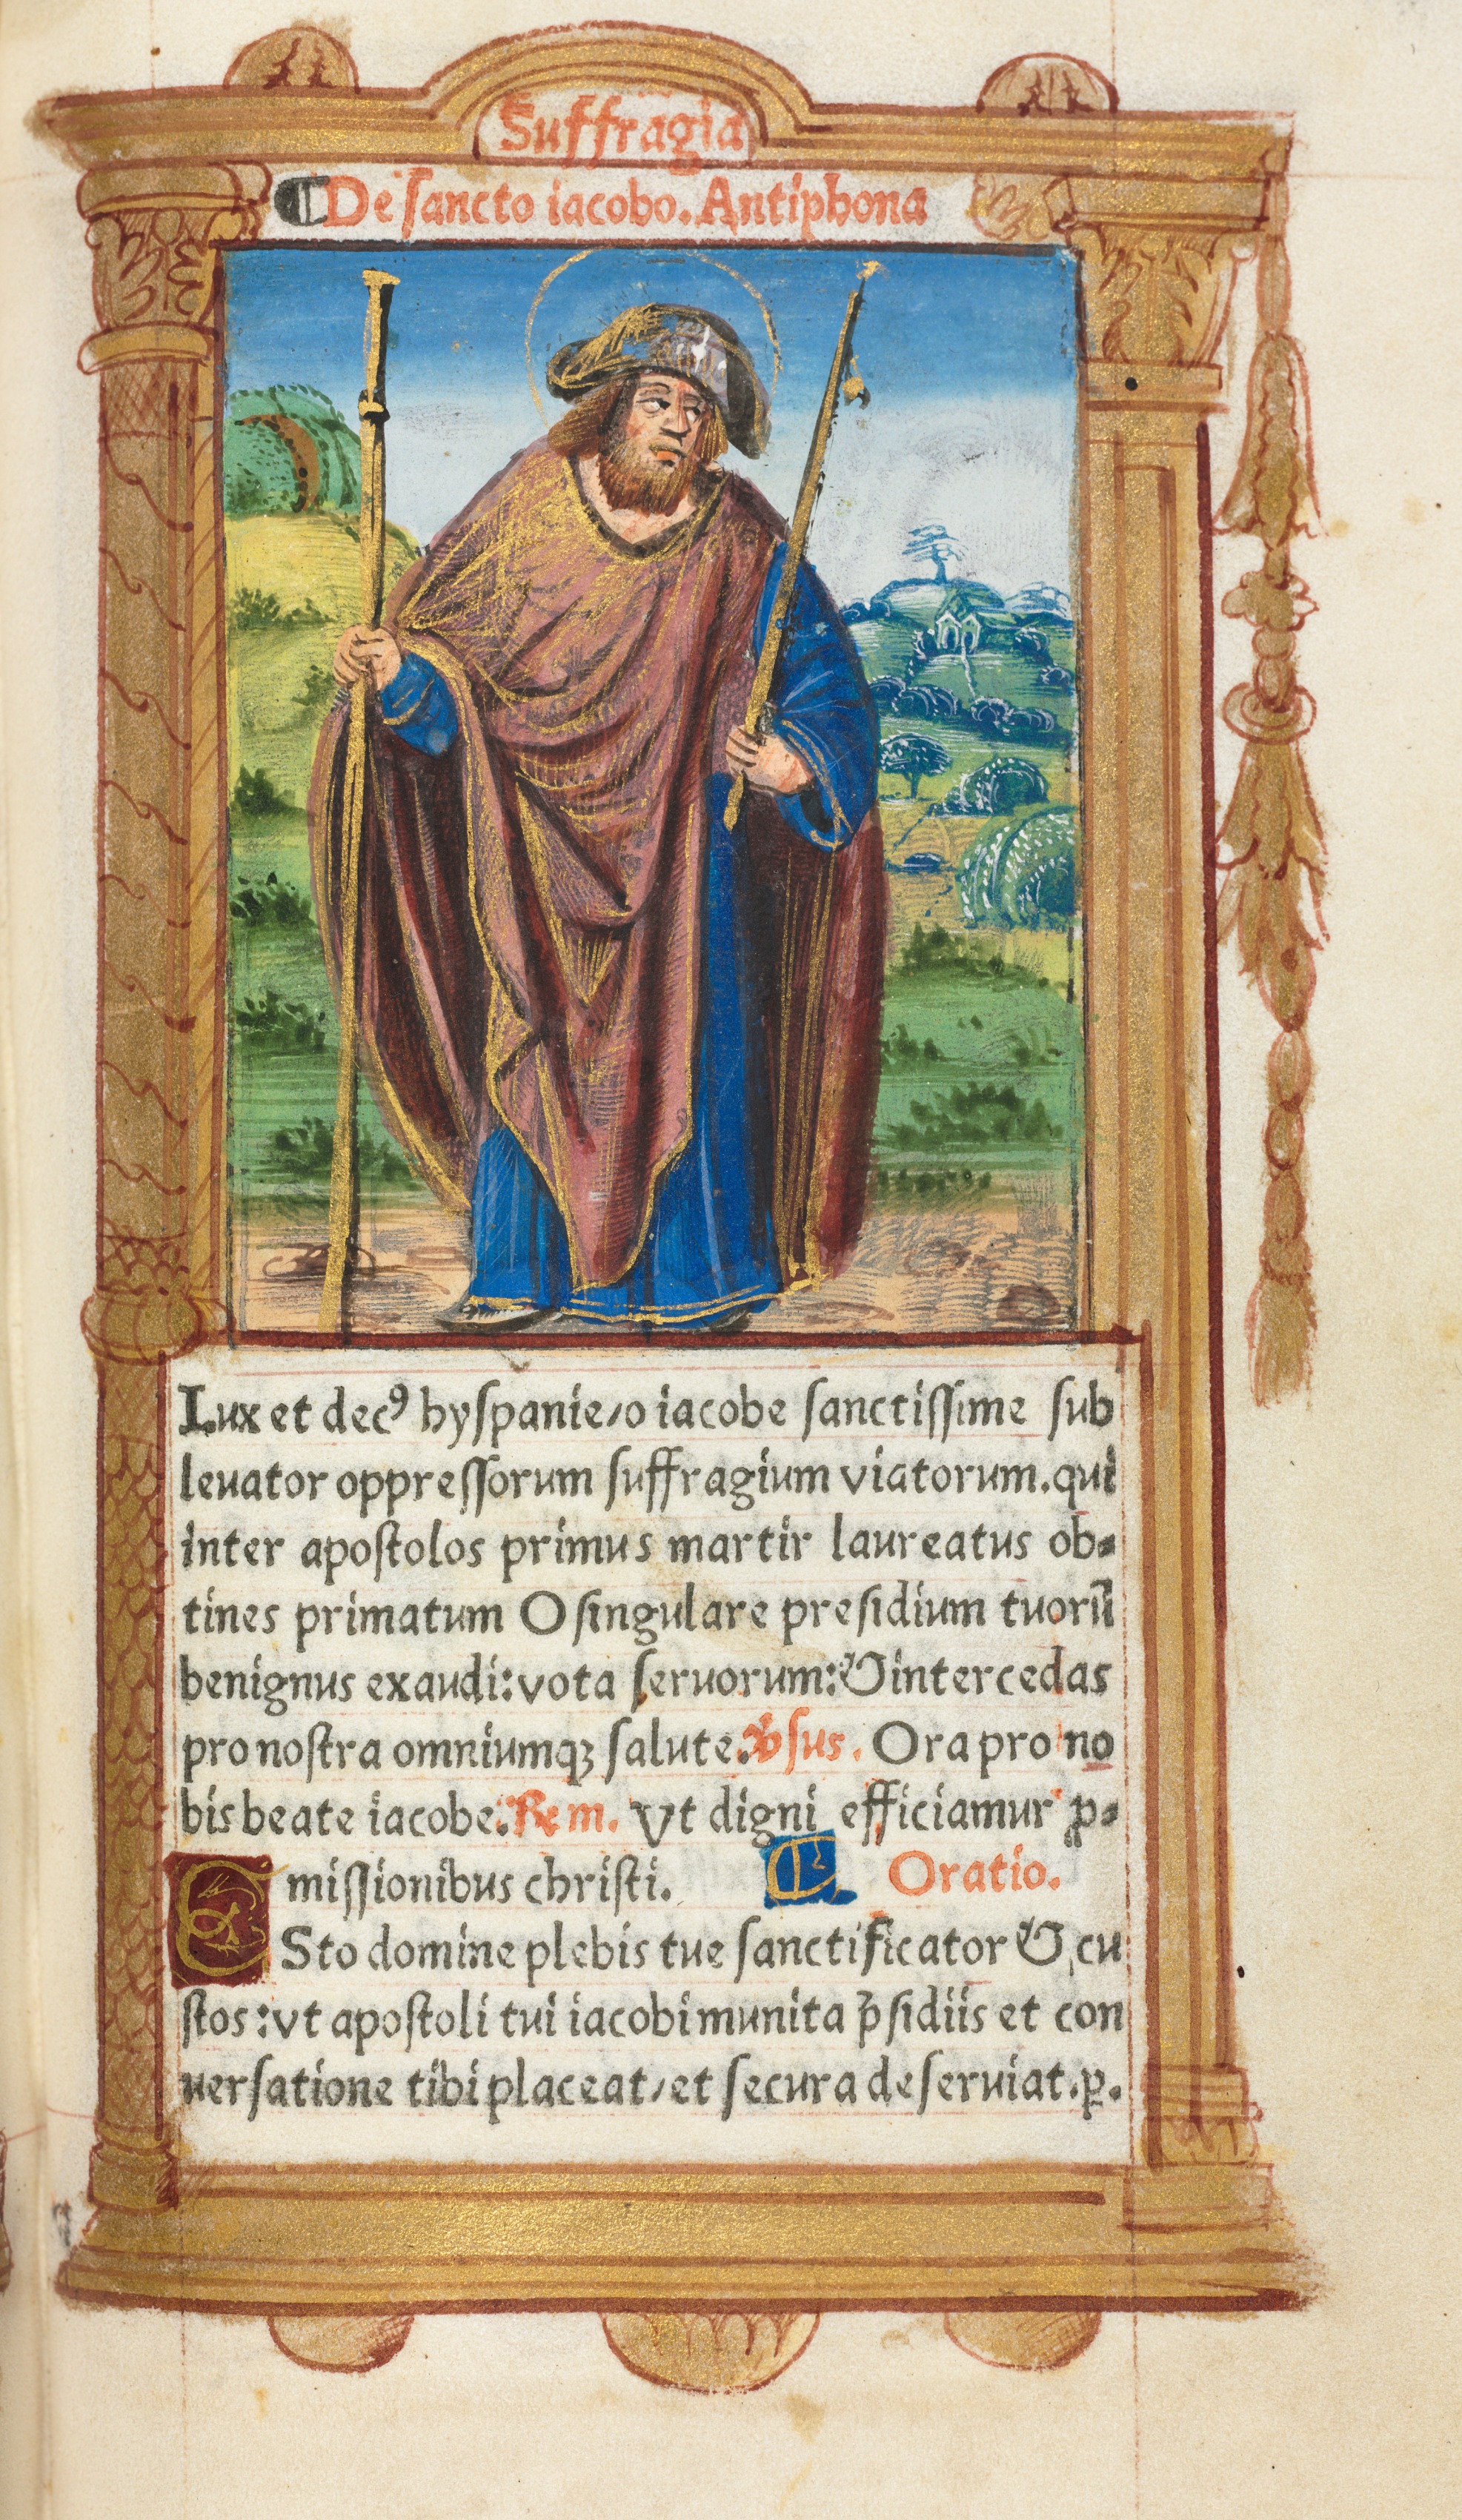 Suffragia
¶ De ſancto iacobo. Antiphona
Lux et decꝰ hyſpanie/o iacobe ſanctiſſime ſub
leuator oppreſſorum ſuffragium viatorum. qui
inter apoſtolos primus martir laureatus ob-
tines primatum O ſingulare preſidium tuorū
benignus exaudi: vota ſeruorum: & intercedas
pro noſtra omniumqꝫ ſalute. ℣sus. Ora pro no
bis beate iacobe. ℞em. Vt digni efficiamur ꝓ-
miſſionibus chriſti. ¶ Oratio.
ESto domine plebis tue ſanctificator & cu
ſtos: vt apoſtoli tui iacobi munita p̄ſidiis et con
uerſatione tibi placeat/et ſecura deſeruiat. ꝑ.